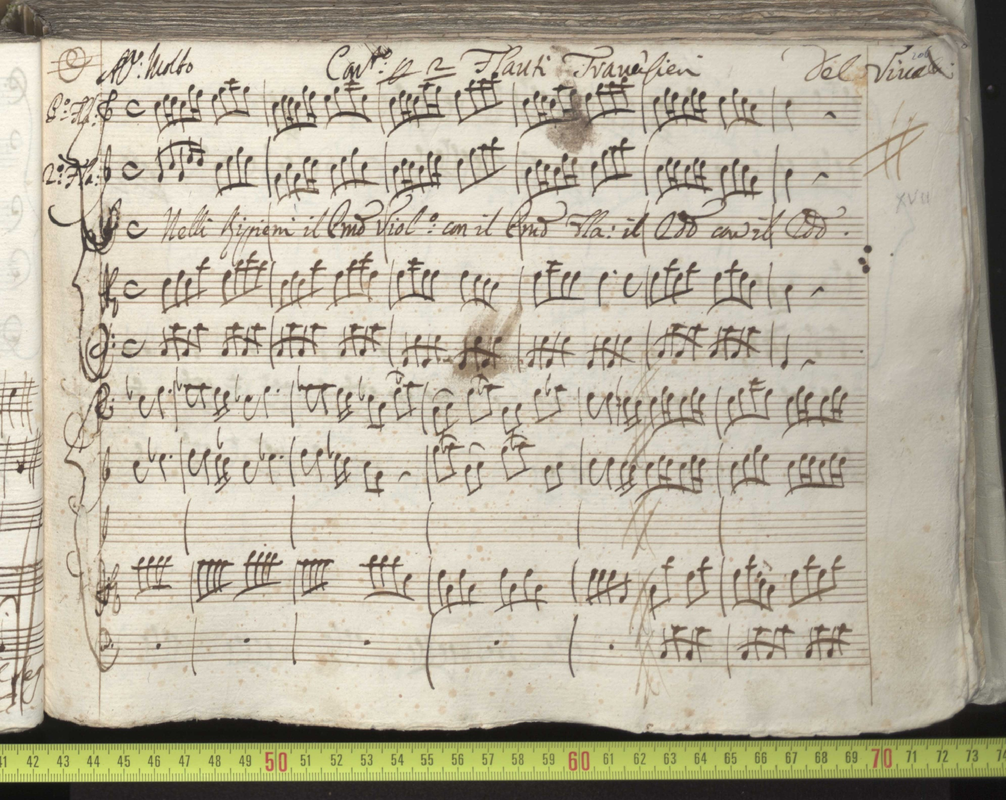 All.º Molto Con.to p 2 Flauti Traversieri Del Vivaldi
P.º Fla:
2.º Fla:
XVII
Nelli Ripieni il Pmo Viol.º con il Pmo Fla: il 2do con il 2do.
41 42 43 44 45 46 47 48 49 50 51 52 53 54 55 56 57 58 59 60 61 62 63 64 65 66 67 68 69 70 71 72 73 74